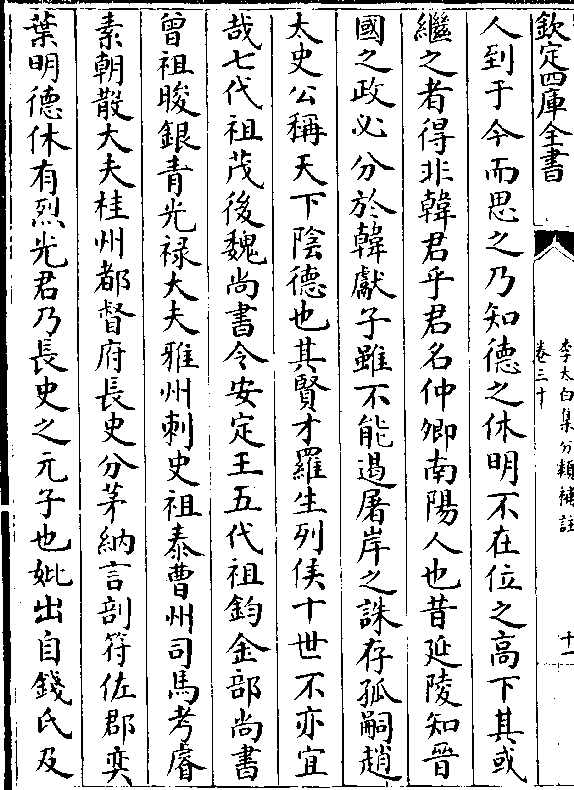 欽定四庫全書
李太白集分類補註
卷三十
十一
人到于今而思之乃知德之休明不在位之高下其或
繼之者得非韓君乎君名仲卿南陽人也昔延陵知晉
國之政必分於韓獻子雖不能遏屠岸之誅存孤嗣趙
太史公稱天下陰德也其賢才羅生列侯十世不亦宜
哉七代祖茂後魏尚書令安定王五代祖鈞金部尚書
曾祖晙銀青光禄大夫雅州刺史祖泰曹州司馬考睿
素朝散大夫桂州都督府長史分茅納言剖符佐郡奕
葉明德休有烈光君乃長史之元子也妣出自錢氏及